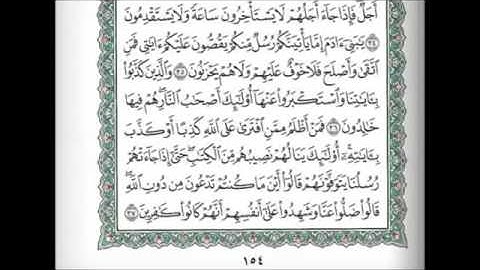 أَجَلٌ فَإِذَا جَآءَ أَجَلُهُمْ لَا يَسْتَأْخِرُونَ سَاعَةً وَلَا يَسْتَقْدِمُونَ
﴿٣٤﴾ يَٰبَنِىٓ ءَادَمَ إِمَّا يَأْتِيَنَّكُمْ رُسُلٌ مِّنكُمْ يَقُصُّونَ عَلَيْكُمْ ءَايَٰتِى فَمَنِ
ٱتَّقَىٰ وَأَصْلَحَ فَلَا خَوْفٌ عَلَيْهِمْ وَلَا هُمْ يَحْزَنُونَ ﴿٣٥﴾ وَٱلَّذِينَ كَذَّبُوا۟
بِـَٔايَٰتِنَا وَٱسْتَكْبَرُوا۟ عَنْهَآ أُو۟لَٰٓئِكَ أَصْحَٰبُ ٱلنَّارِ هُمْ فِيهَا
خَٰلِدُونَ ﴿٣٦﴾ فَمَنْ أَظْلَمُ مِمَّنِ ٱفْتَرَىٰ عَلَى ٱللَّهِ كَذِبًا أَوْ كَذَّبَ
بِـَٔايَٰتِهِۦٓ أُو۟لَٰٓئِكَ يَنَالُهُمْ نَصِيبُهُم مِّنَ ٱلْكِتَٰبِ حَتَّىٰٓ إِذَا جَآءَتْهُمْ
رُسُلُنَا يَتَوَفَّوْنَهُمْ قَالُوٓا۟ أَيْنَ مَا كُنتُمْ تَدْعُونَ مِن دُونِ ٱللَّهِ
قَالُوا۟ ضَلُّوا۟ عَنَّا وَشَهِدُوا۟ عَلَىٰٓ أَنفُسِهِمْ أَنَّهُمْ كَانُوا۟ كَٰفِرِينَ ﴿٣٧﴾
١٥٤